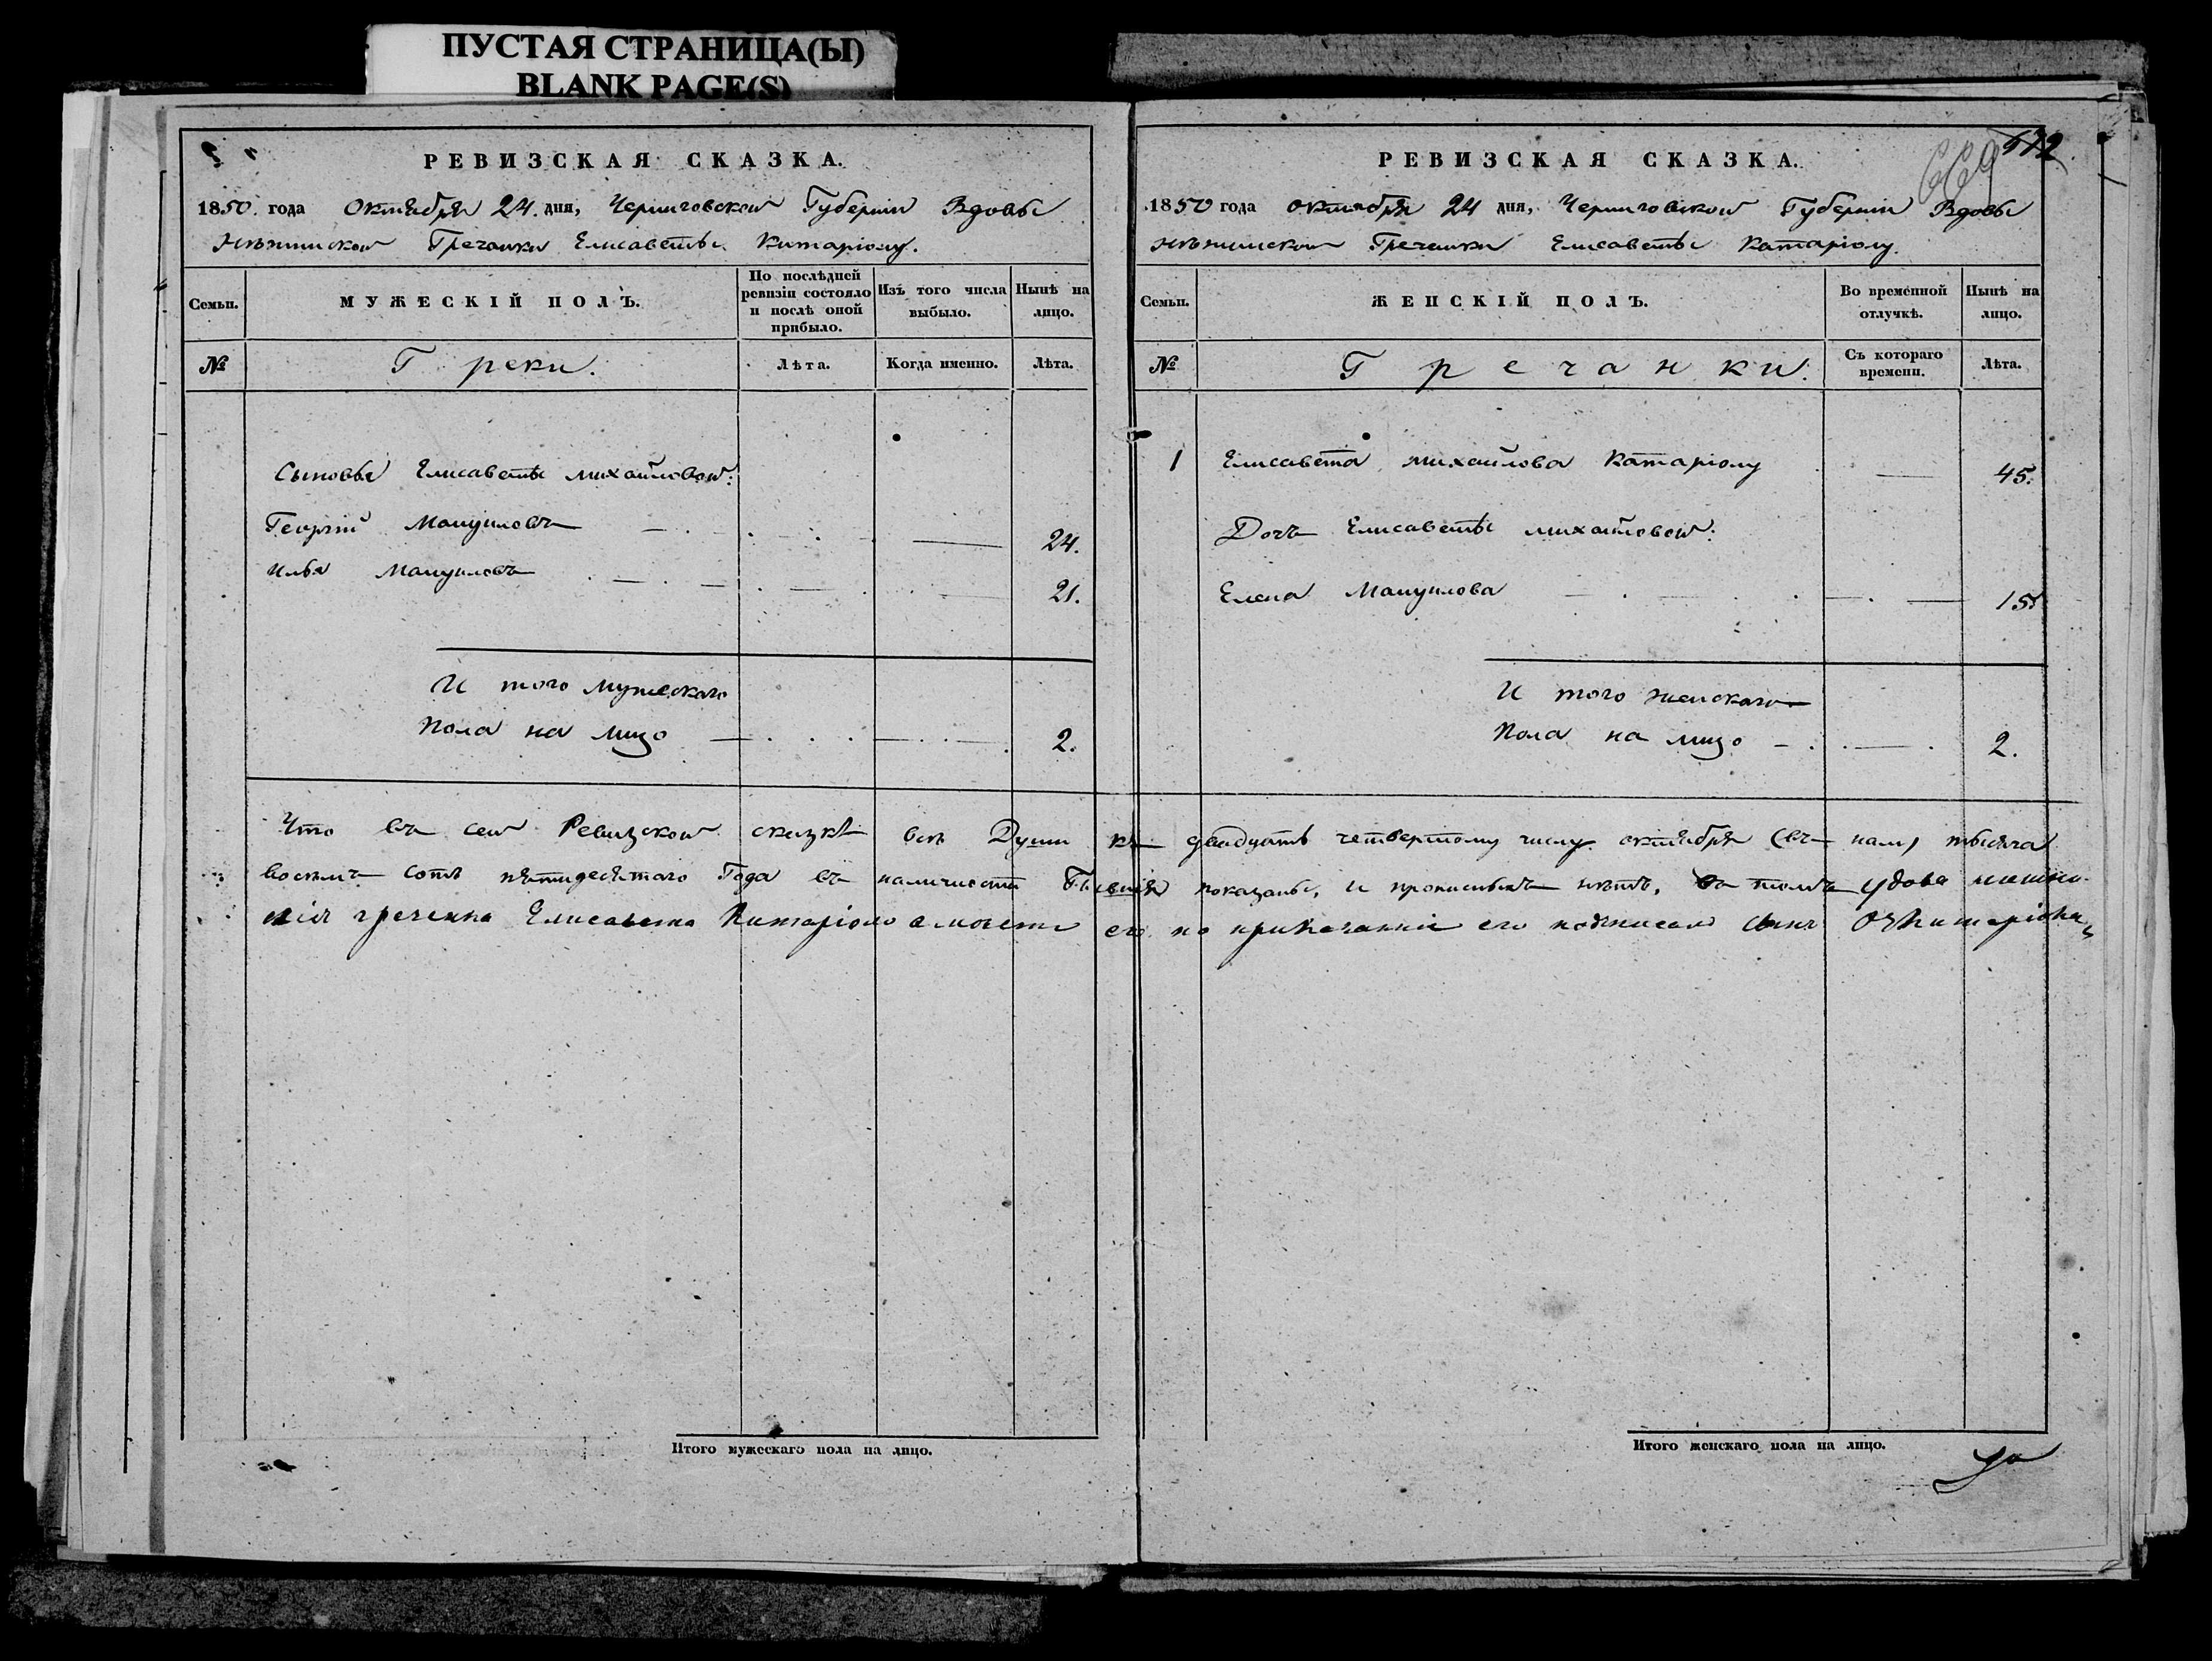 ПУСТАЯ СТРАНИЦА(Ы)
BLANK PAGE(S)
РЕВИЗСКАЯ СКАЗКА.
1850. года Октября 24. дня, Черниговской Губерніи Вдовы
Нѣжинской Гречанки Елисаветы Катаріолу.
Семьи.
МУЖЕСКІЙ ПОЛЪ.
По послѣдней ревизіи состояло и послѣ оной прибыло.
Изъ того числа выбыло.
Нынѣ на лицо.
№
Греки.
Лѣта.
Когда именно.
Лѣта.
Сыновья Елисаветы Михайловой:
Георгій Мануиловъ 24.
Илья Мануиловъ 21.
И того мужескаго
Пола на лицо 2.
РЕВИЗСКАЯ СКАЗКА.
669
672
1850 года октября 24 дня, Черниговской Губерніи Вдовы
Нѣжинской Гречанки Елисаветы Катаріолу.
Семьи.
ЖЕНСКІЙ ПОЛЪ.
Во временной отлучкѣ.
Нынѣ на лицо.
№
Гречанки.
Съ котораго времени.
Лѣта.
1 Елисавета Михайлова Катаріолу 45.
Дочь Елисаветы Михайловой:
Елена Мануилова 15
И того женскаго
Пола на лицо 2.
Что въ сей Ревизской сказкѣ всѣ Души къ двадцать четвертому числу октября тысяча
восемъ сотъ пятидесятаго Года въ наличности показаны, и прописныхъ нѣтъ, въ томъ удова
гречанка Елисавета Китаріоло а место его по приказанію его подписал сын
Итого мужескаго пола на лицо.
Итого женскаго пола на лицо.